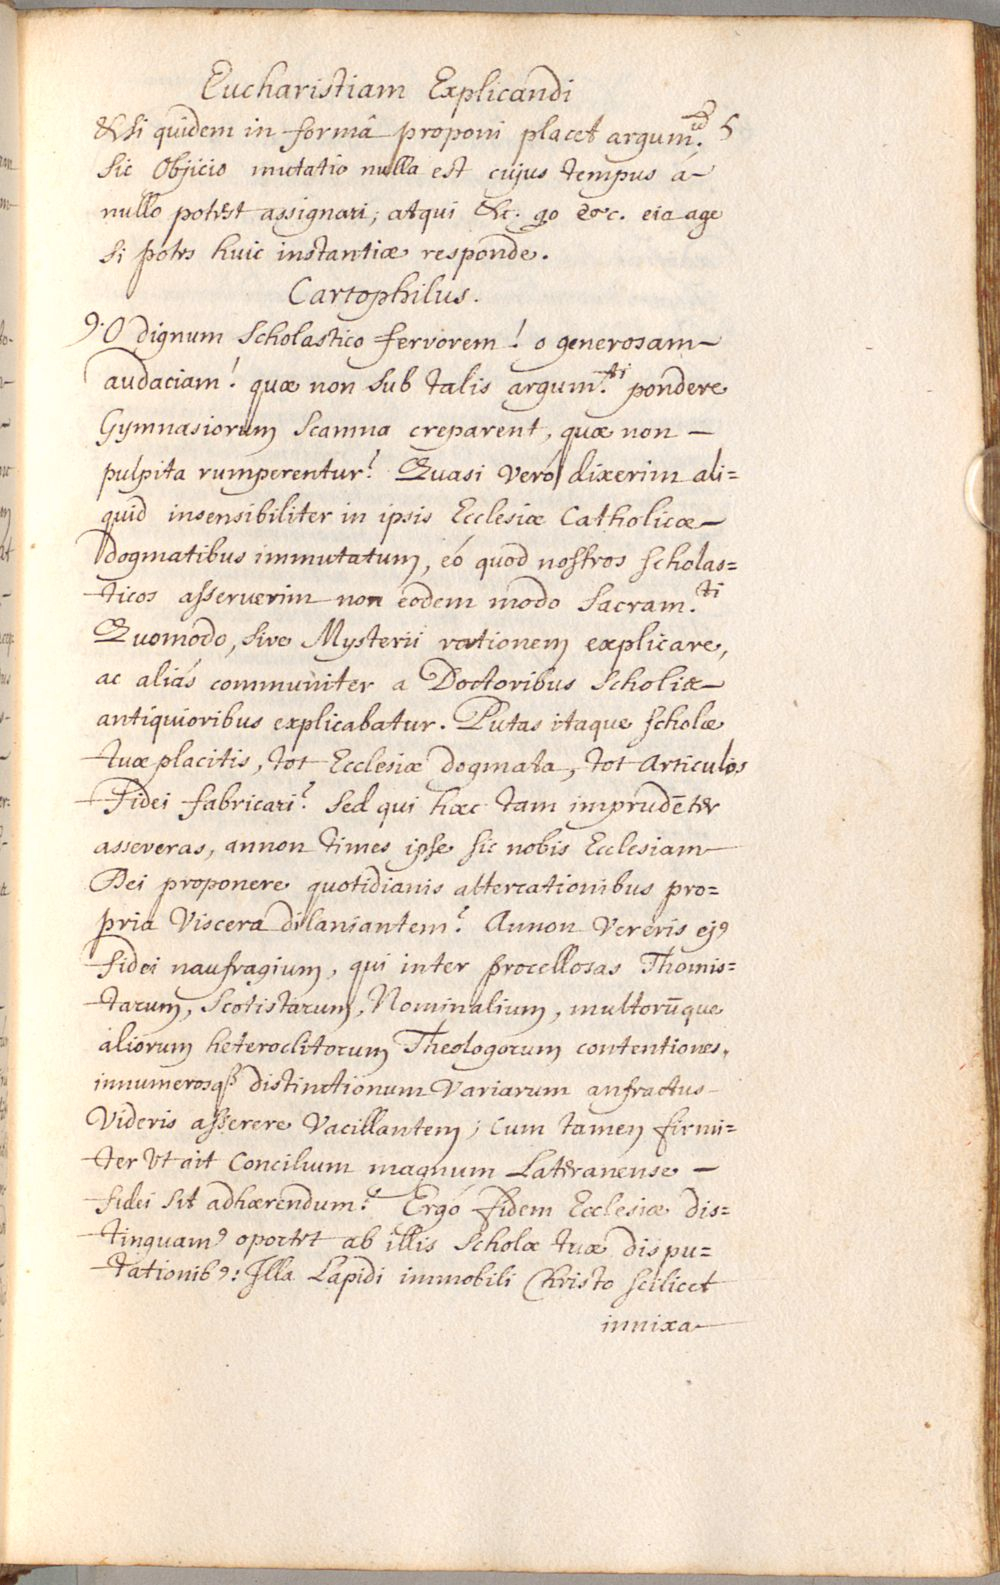 Eucharistiam Explicandi
& si quidem in formâ proponi placet argum.tũ 5
Sic Objicio mutatio nulla est cujus tempus á
nullo potest assignari; atqui &c. go &c. eia age
si potes huic instantiæ responde.
Cartophilus.
9. O dignum Scholastico fervorem! o generosam
audaciam! quæ non sub talis argum.ti pondere
Gymnasiorum Scamna creparent, quæ non
pulpita rumperentur? Quasi veró dixerim ali=
quid insensibiliter in ipsis Ecclesiæ Catholicæ
dogmatibus immutatum, eó quod nostros scholas=
ticos asseruerim non eodem modo Sacram.ti
Quomodo, sive Mysterii rationem explicare,
ac aliás communiter a Doctoribus Scholiæ
antiquioribus explicabatur. Putas itaque scholæ
tuæ placitis, tot Ecclesiæ dogmata, tot Articulos
Fidei fabricari? Sed qui hæc tam imprudēter
asseveras, annon times ipse sic nobis Ecclesiam
Dei proponere quotidianis altercationibus pro=
pria Viscera dilaniantem? Annon Vereris ej9
fidei naufragium, qui inter procellosas Thomis=
tarum, Scotistarum, Nominalium, multorūque
aliorum heteroclitorum Theologorum contentiones,
innumerosq3 distinctionum Variarum anfractus
Videris asserere Vacillantem; Cum tamen firmi=
ter Ut ait Concilium magnum Lateranense
fidei sit adhærendum? Ergó fidem Ecclesiæ dis=
tinguam9 oportet ab illis Scholæ tuæ dispu=
tationib9: Illa Lapidi immobili Christo scilicet
innixa